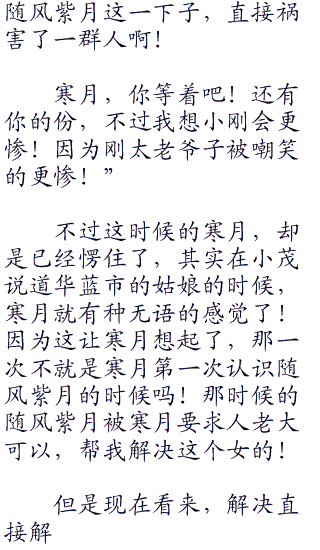 随风紫月这一下子，直接祸
害了一群人啊！
寒月，你等着吧！还有
你的份，不过我想小刚会更
惨！因为刚太老爷子被嘲笑
的更惨！”
不过这时候的寒月，却
是已经愣住了，其实在小茂
说道华蓝市的姑娘的时候，
寒月就有种无语的感觉了！
因为这让寒月想起了，那一
次不就是寒月第一次认识随
风紫月的时候吗！那时候的
随风紫月被寒月要求人老大
可以，帮我解决这个女的！
但是现在看来，解决直
接解